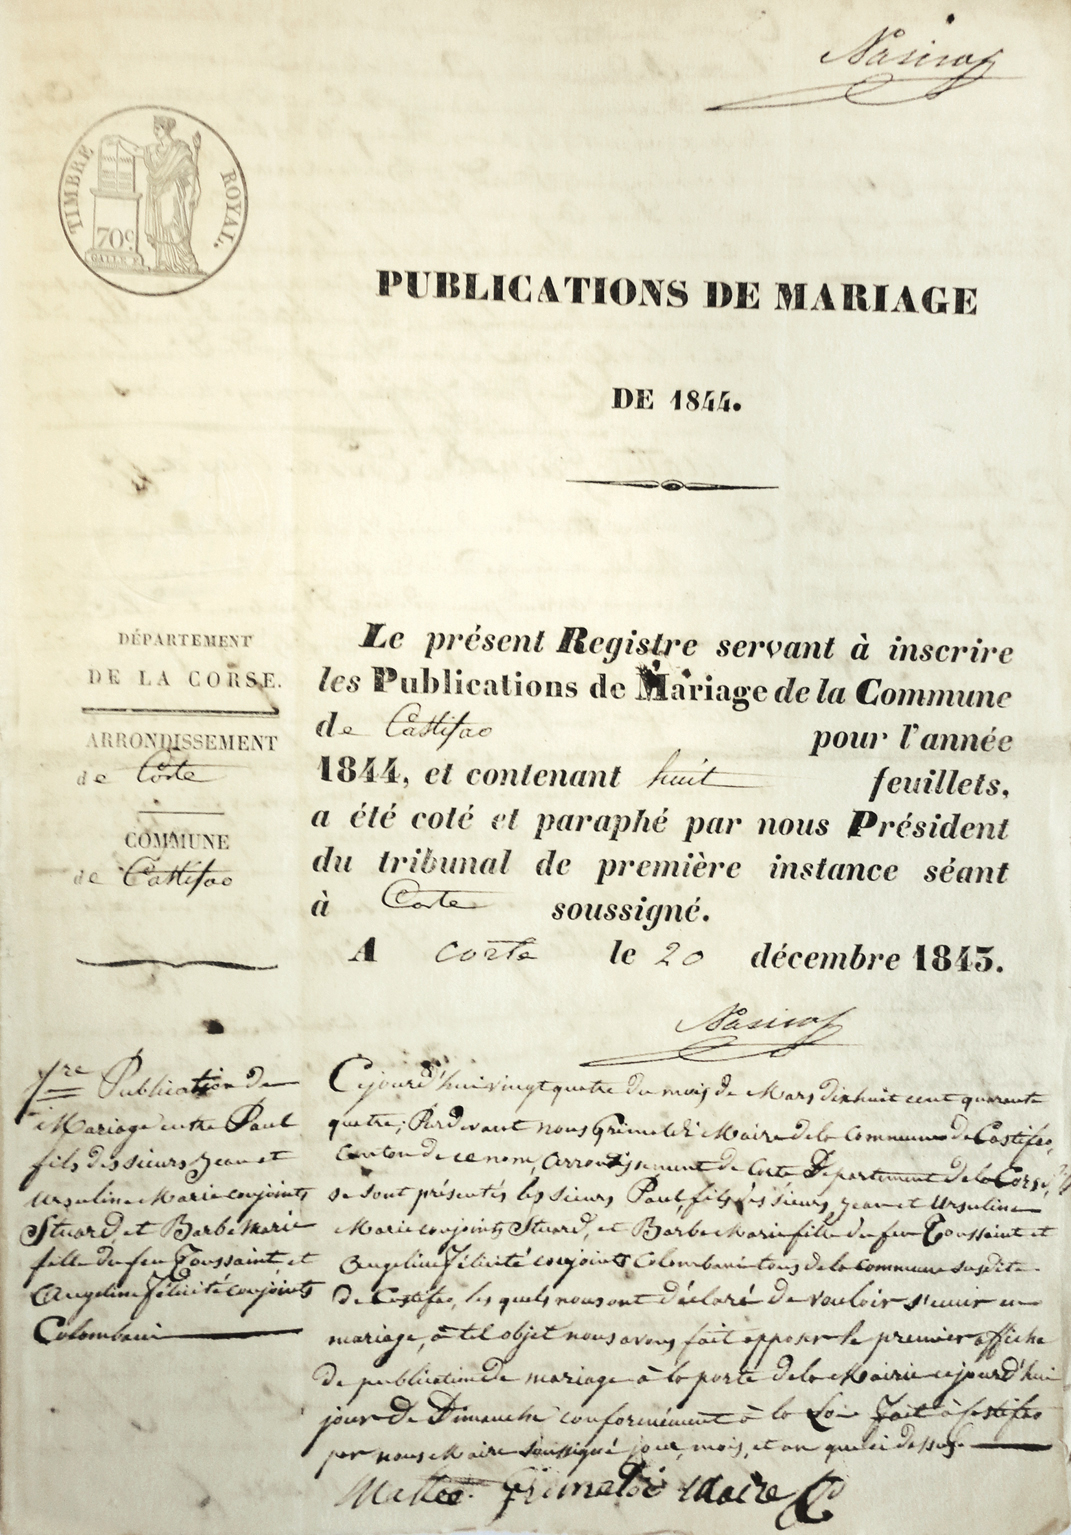 TIMBRE ROYAL.
70c
PUBLICATIONS DE MARIAGE
DE 1844.
DÉPARTEMENT
DE LA CORSE.
ARRONDISSEMENT
de Corte
COMMUNE
de Castifao
Le présent Registre servant à inscrire
les Publications de Mariage de la Commune
de Castifao pour l'année
1844, et contenant huit feuillets,
a été coté et paraphé par nous Président
du tribunal de première instance séant
à Corte soussigné.
A Corte le 20 décembre 1843.
1re Publication de
Mariage entre Paul
fils des sieurs Jean et
Ursuline Marie conjoints
Stuard, et Barbe Marie
fille du feu Toussaint, et
Angeline Félicité conjoints
Colombani
Cejourd'hui vingt quatre du mois de Mars dixhuit cent quarante
quatre; Pardevant nous Grimaldi Maire de la Commune de Castifao,
Canton de ce nom, Arrondissement de Corte Département de la Corse,
se sont présentés les sieurs Paul, fils des sieurs Jean et Ursuline
Marie conjoints Stuard, et Barbe Marie fille du feu Toussaint et
Angeline Félicité conjoints Colombani tous de la commune susdite
de Castifao, les quels nous ont déclaré de vouloir s'unir en
mariage, à tel objet nous avons fait apposer le premier affiche
de publication de mariage à la porte de la Mairie cejourd'hui
jour de Dimanche conformément à la Loi Fait à Castifao
par nous Maire soussigné jour, mois, et an que ci dessus.
Matteo Grimaldi Maire